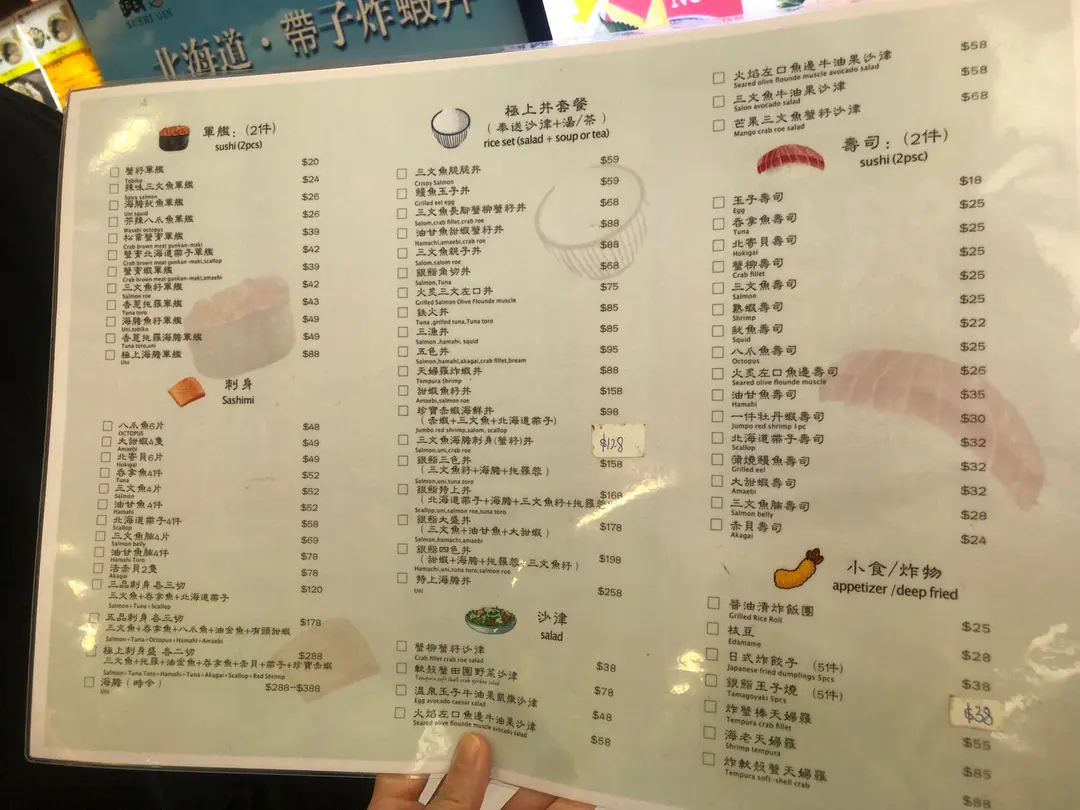 SUSHI GIN
北海道·帶子炸蝦丼
軍艦:(2件)
sushi (2pcs)
蟹籽軍艦 $20
Tobiko
辣味三文魚軍艦 $24
Spicy salmon
海膽魷魚軍艦 $26
Uni squid
芥辣八爪魚軍艦 $26
Wasabi octopus
松葉蟹寶軍艦 $39
Crab brown meat gunkan-maki
蟹寶北海道帶子軍艦 $42
Crab brown meat gunkan-maki,scallop
蟹寶蝦軍艦 $39
Crab brown meat gunkan-maki,amaebi
三文魚籽軍艦 $42
Salmon roe
香蔥拖羅軍艦 $43
Tuna toro
海膽魚籽軍艦 $49
Uni,tobiko
香蔥拖羅海膽軍艦 $49
Tuna toro,uni
極上海膽軍艦 $88
Uni
刺身
Sashimi
八爪魚6片 $48
OCTOPUS
大甜蝦4隻 $49
Amaebi
北寄貝6片 $49
Hokigai
吞拿魚4件 $52
Tuna
三文魚4片 $52
Salmon
油甘魚4件 $52
Hamahi
北海道帶子4件 $58
Scallop
三文魚腩4片 $69
Salmon belly
油甘魚腩4件 $78
Hamahi Toro
活赤貝2隻 $78
Akagai
三品刺身各三切 $120
三文魚+吞拿魚+北海道帶子
Salmon+Tuna+Scallop
五品刺身各三切 $178
三文魚+吞拿魚+八爪魚+油金魚+有頭甜蝦
Salmon+Tuna+Octopus+Hamahi+Amaebi
極上刺身盛 各二切 $288
三文魚+拖羅+油金魚+吞拿魚+赤貝+帶子+珍寶赤蝦
Salmon+Tuna Toro+Hamahi+Tuna+Akagai+Scallop+Red Shrimp
海膽(時令) $288-$388
Uni
極上丼套餐
(奉送沙律+湯/茶)
rice set (salad + soup or tea)
三文魚脆脆丼 $59
Crispy Salmon
鰻魚玉子丼 $59
Grilled eel egg
三文魚長腳蟹柳蟹籽丼 $68
Salom,crab fillet,crab roe
油甘魚甜蝦蟹籽丼 $88
Hamachi,amaebi,crab roe
三文魚親子丼 $88
Salom,salom roe
銀鮨角切丼 $68
Salmon,Tuna
火炙三文左口丼 $75
Grilled Salmon Olive Flounde muscle
鉄火丼 $85
Tuna ,grilled tuna,Tuna toro
三漁丼 $85
Salmon ,hamahi, squid
五色丼 $95
Salmon,hamahi,akagai,crab fillet,bream
天婦羅炸蝦丼 $88
Tempura Shrimp
甜蝦魚籽丼 $158
Amaebi,salmon roe
珍寶赤蝦海鮮丼 $98
(赤蝦+三文魚+北海道帶子)
Jumbo red shrimp,salom, scallop
三文魚海膽刺身(蟹籽)丼 $128
Salmon,uni,crab roe
銀鮨三色丼 $158
(三文魚籽+海膽+拖羅蓉)
Salmon,uni,tuna toro
銀鮨特上丼 $168
(北海道帶子+海膽+三文魚籽+拖羅蓉)
Scallop,uni,salmon roe,tuna toro
銀鮨大盛丼 $178
(三文魚+油甘魚+大甜蝦)
Salmon,hamachi,amaebi
銀鮨四色丼 $198
(甜蝦+海膽+拖羅蓉+三文魚籽)
Hamachi,uni,tuna toro,salmon roe
特上海膽丼 $258
Uni
沙律
salad
蟹柳蟹籽沙律 $38
Crab fillet crab roe salad
軟殼蟹田園野菜沙律 $78
Tempura soft shell crab garden salad
溫泉玉子牛油果凱撒沙律 $48
Egg avocado caesar salad
火焰左口魚邊牛油果沙律 $58
Seared olive flounde muscle avocado salad
火焰左口魚邊牛油果沙律 $58
Seared olive flounde muscle avocado salad
三文魚牛油果沙律 $58
Salon avocado salad
芒果三文魚蟹籽沙律 $68
Mango crab roe salad
壽司:(2件)
sushi (2psc)
玉子壽司 $18
Egg
吞拿魚壽司 $25
Tuna
北寄貝壽司 $25
Hokigai
蟹柳壽司 $25
Crab fillet
三文魚壽司 $25
Salmon
熟蝦壽司 $25
Shrimp
魷魚壽司 $22
Squid
八爪魚壽司 $25
Octopus
火炙左口魚邊壽司 $26
Seared olive flounde muscle
油甘魚壽司 $35
Hamahi
一件牡丹蝦壽司 $30
Jumpo red shrimp 1pc
北海道帶子壽司 $32
Scallop
蒲燒鰻魚壽司 $32
Grilled eel
大甜蝦壽司 $32
Amaebi
三文魚腩壽司 $28
Salmon belly
赤貝壽司 $24
Akagai
小食/炸物
appetizer /deep fried
醬油漬炸飯團 $25
Grilled Rice Roll
枝豆 $28
Edamame
日式炸餃子 (5件) $38
Japanese fried dumplings 5pcs
銀鮨玉子燒 (5件) $38
Tamagoyaki 5pcs
炸蟹棒天婦羅 $55
Tempura crab fillet
海老天婦羅 $85
Shrimp tempura
炸軟殼蟹天婦羅 $88
Tempura soft-shell crab